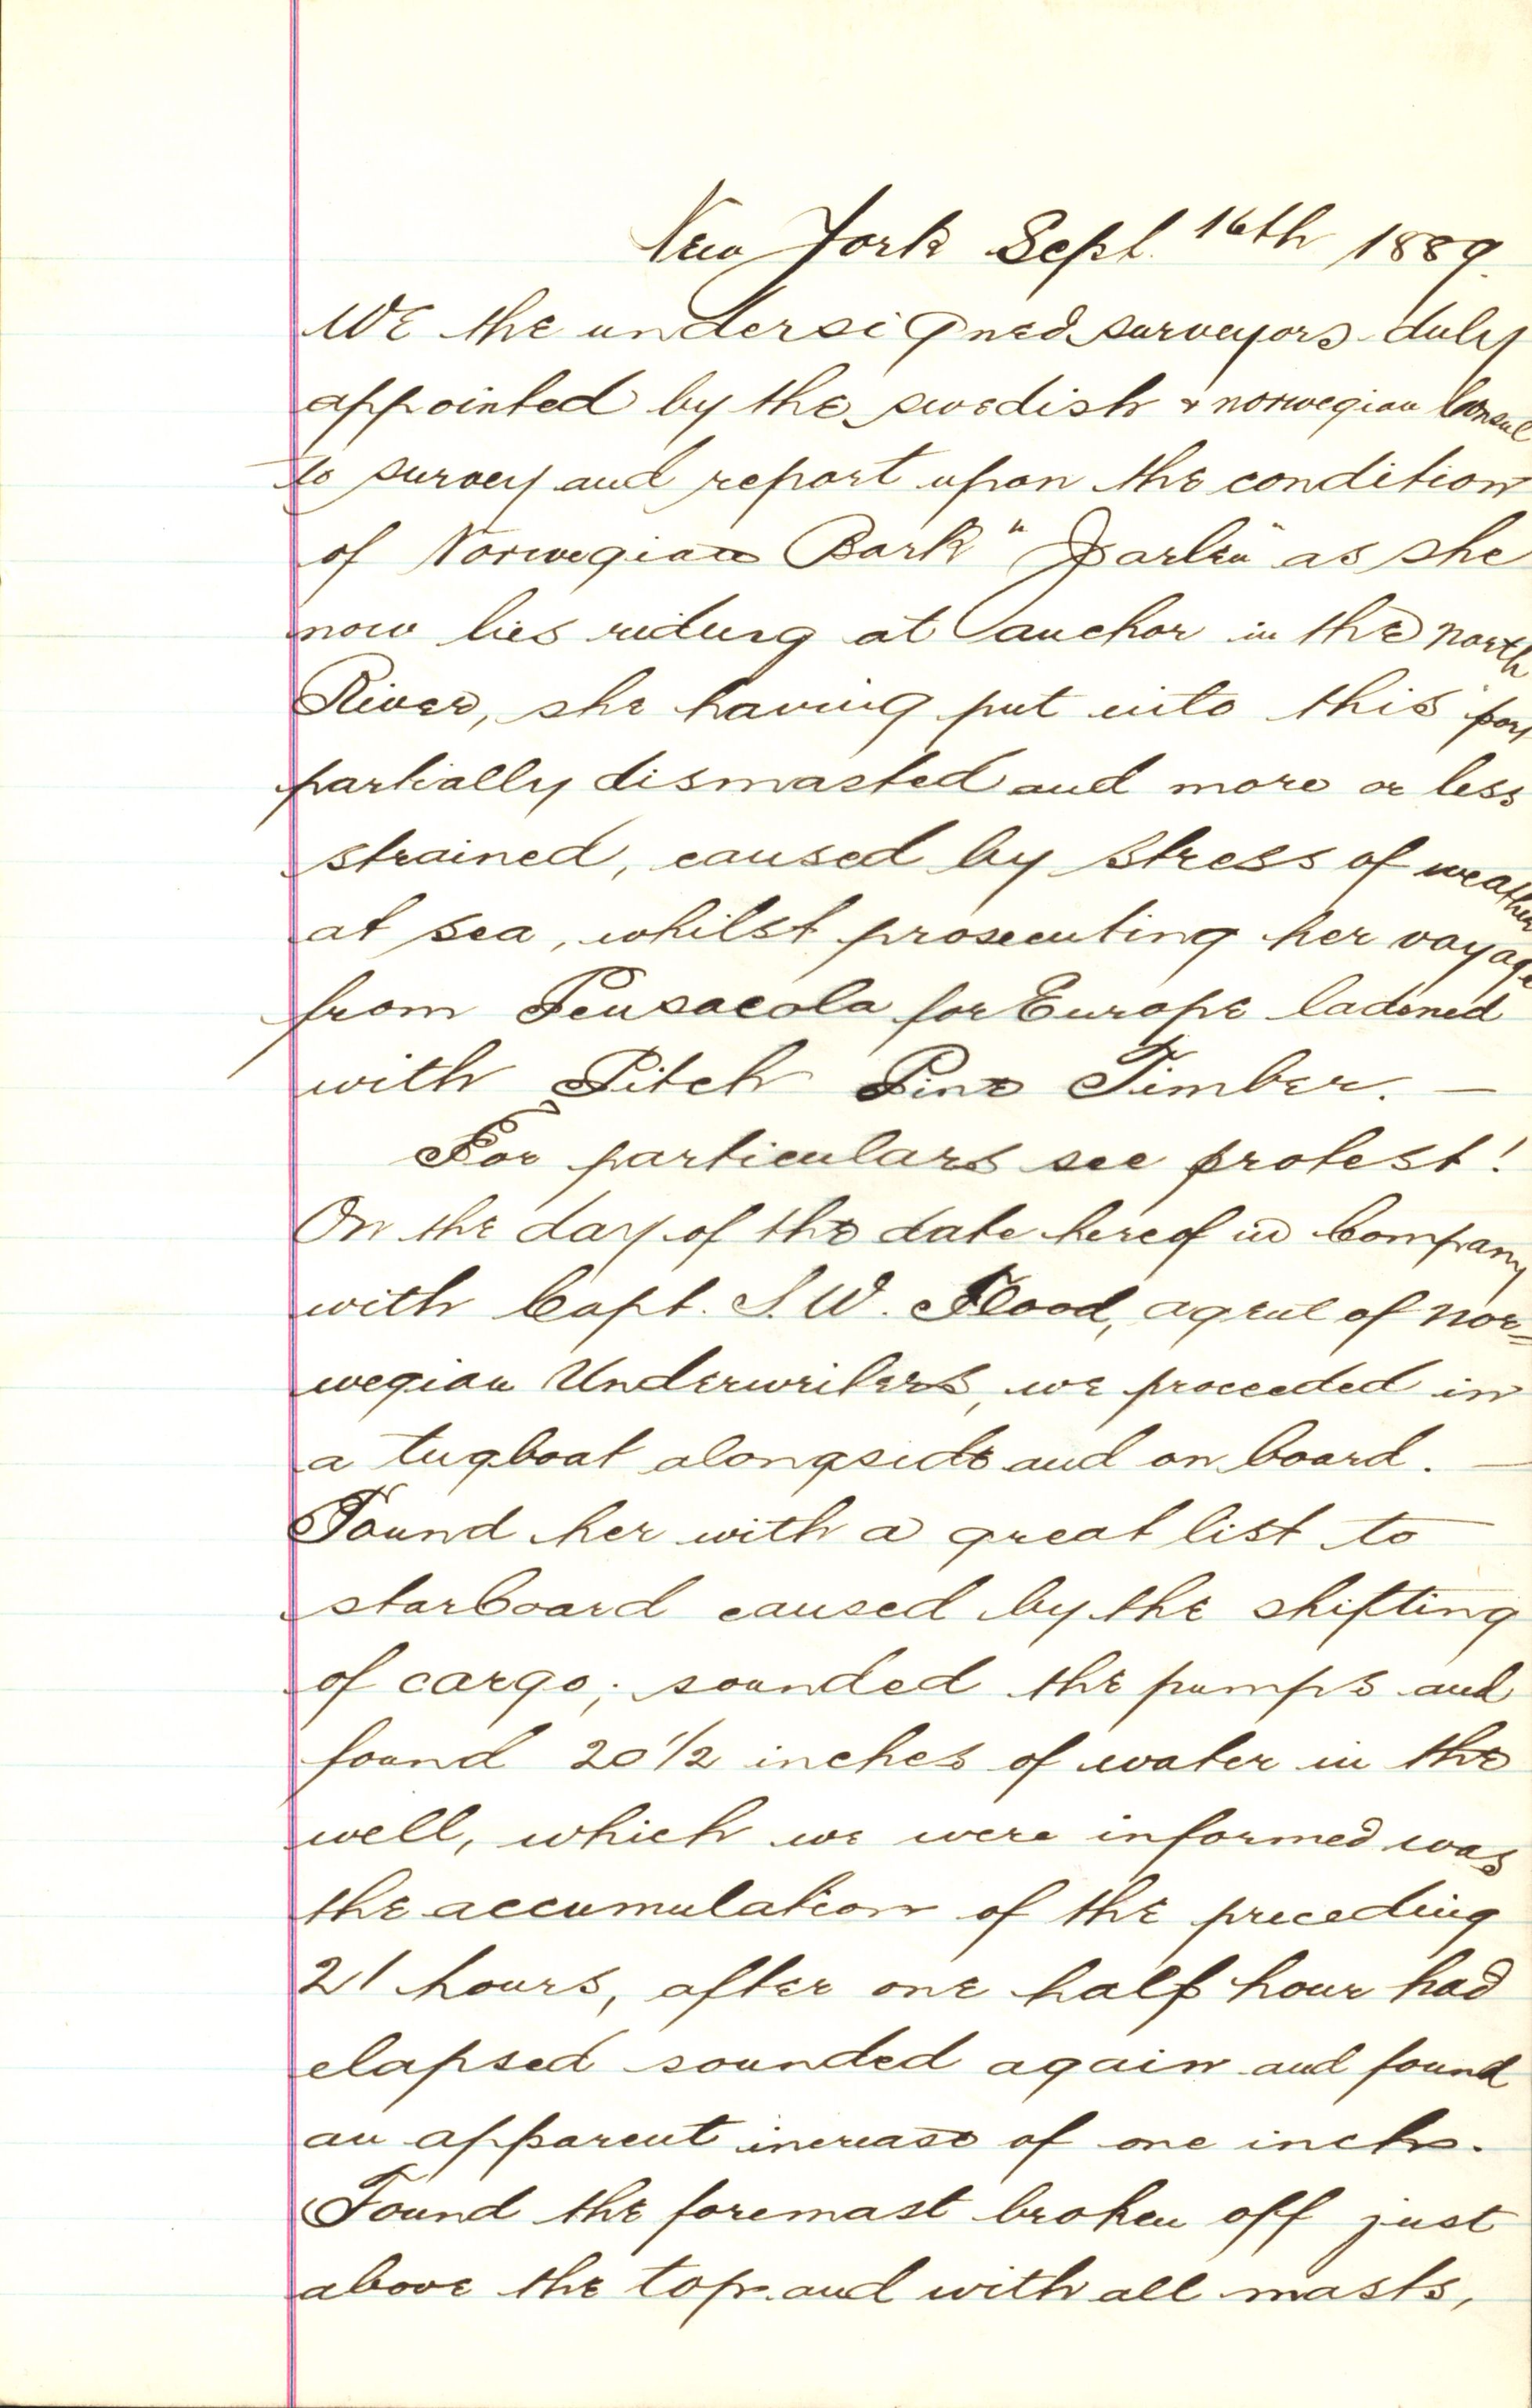 New York Sept. 16th 1889.
We the undersigned surveyors duly
appointed by the swedish & norwegian Consul
to survey and report upon the condition
of Norwegian Bark "Jarlen" as she
now lies riding at anchor in the north
River, she having put into this port
partially dismasted and more or less
strained, caused by stress of weather
at sea, whilst prosecuting her voyage
from Pensacola for Europe ladened
with Pitch Pine Timber. —
For particulars see protest!
On the day of the date hereof in Company
with Capt. S. W. Flood, agent of nor=
wegian Underwriters, we proceeded in
a tugboat alongside and on board. —
Found her with a great list to
starboard caused by the shifting
of cargo; sounded the pumps and
found 20 1/2 inches of water in the
well, which we were informed was
the accumulation of the preceding
21 hours, after one half hour had
elapsed sounded again and found
an apparent increase of one inch.
Found the foremast broken off just
above the top and with all masts,